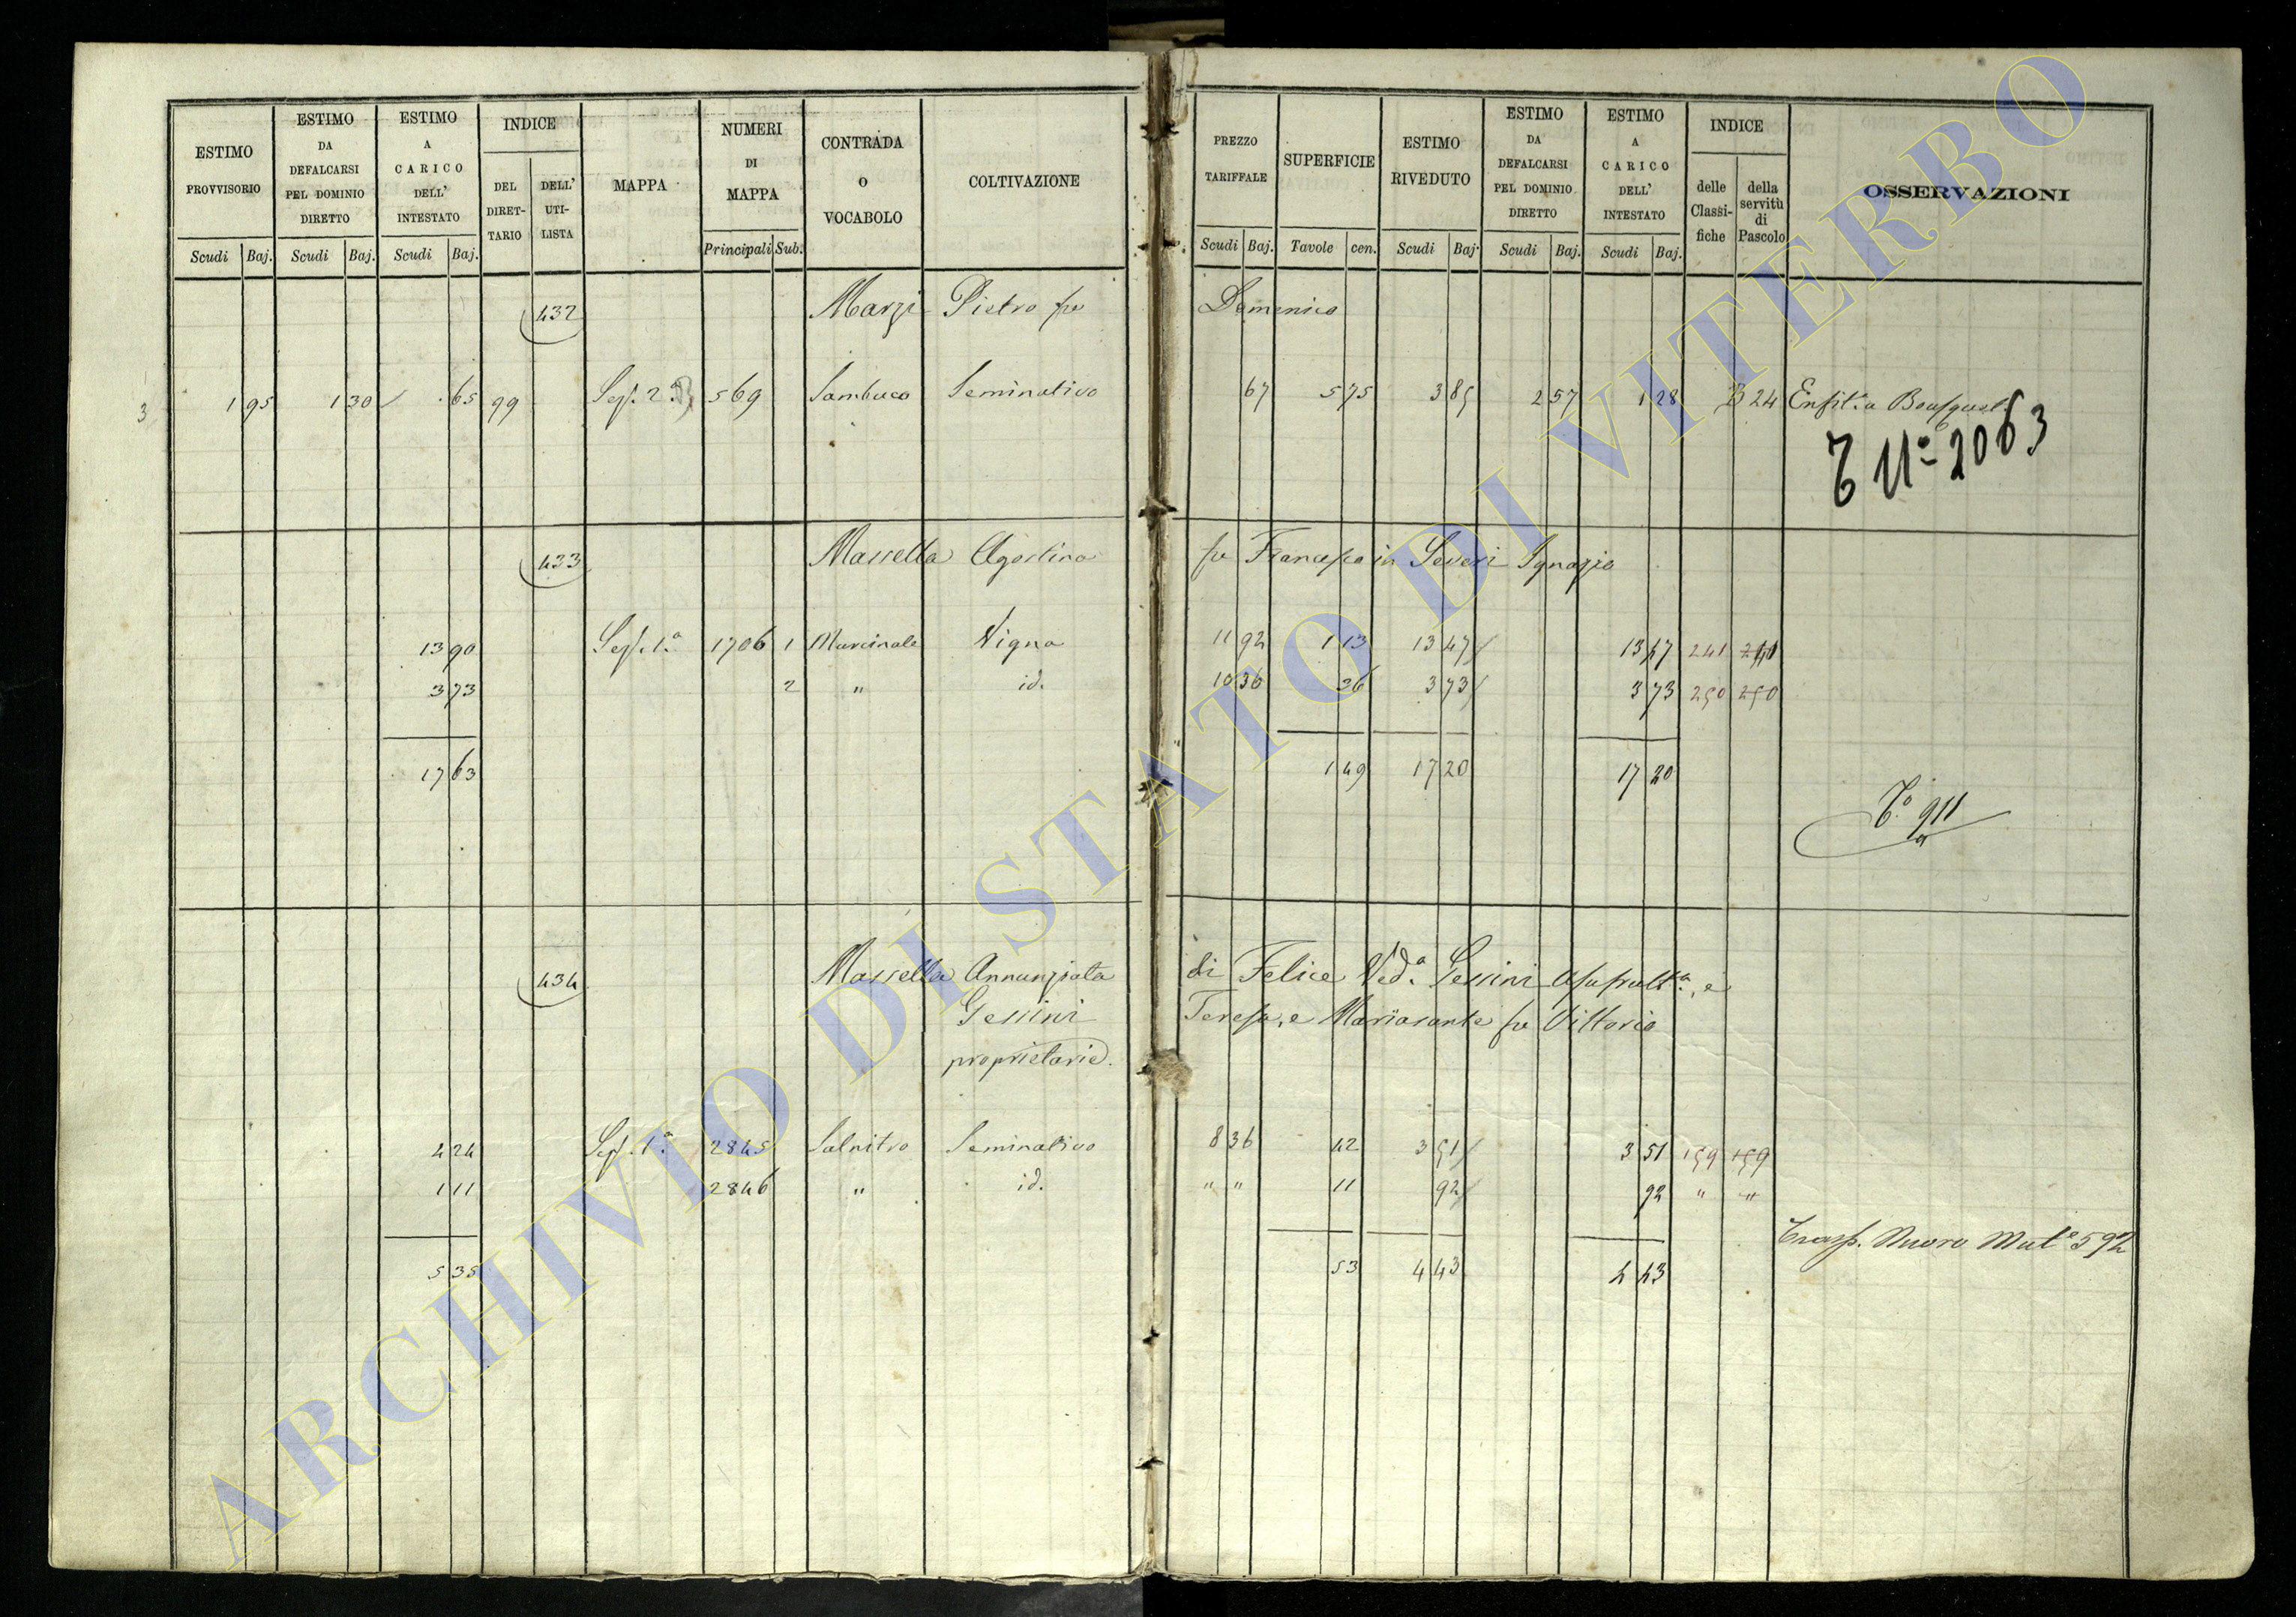 ESTIMO PROVVISORIO | ESTIMO DA DEFALCARSI PEL DOMINIO DIRETTO | ESTIMO A CARICO DELL' INTESTATO | INDICE | MAPPA | NUMERI DI MAPPA | CONTRADA O VOCABOLO | COLTIVAZIONE | PREZZO TARIFFALE | SUPERFICIE | ESTIMO RIVEDUTO | ESTIMO DA DEFALCARSI PEL DOMINIO DIRETTO | ESTIMO A CARICO DELL' INTESTATO | INDICE | OSSERVAZIONI
DEL DIRET-TARIO | DELL' UTI-LISTA | delle Classi-fiche | della servitù di Pascolo
Scudi Baj. | Scudi Baj. | Scudi Baj. | Principali Sub. | Scudi Baj. | Tavole cen. | Scudi Baj | Scudi Baj. | Scudi Baj.
432 Marzi Pietro fu Domenico
3 1 95 1 30 65 99 Sez. 2a 569 Sambuco Seminativo 67 5 75 3 85 2 57 1 28 B 24 Enfit. a
2063
433 Massella Agostina fu Francesco in Severi Ignazio
13 90 Sez. 1a 1706 1 Murcinale Vigna 11 92 1 13 13 47 13 47 241 241
3 73 2 " id. 10 36 36 3 73 3 73 250 250
17 63 1 49 17 20 17 20
To 911
434 Massella Annunziata di Felice Veda Gessini Usufrutta, e
Gessini Teresa, e Mariasante fu Vittorio
proprietarie.
4 24 Sez. 1a 2845 Salnitro Seminativo 8 36 42 3 51 3 51 159 159
1 11 2846 " id. " " 11 92 92 " "
5 35 53 4 43 4 43
Trasp. Nuovo Mute 592
ARCHIVIO DI STATO DI VITERBO